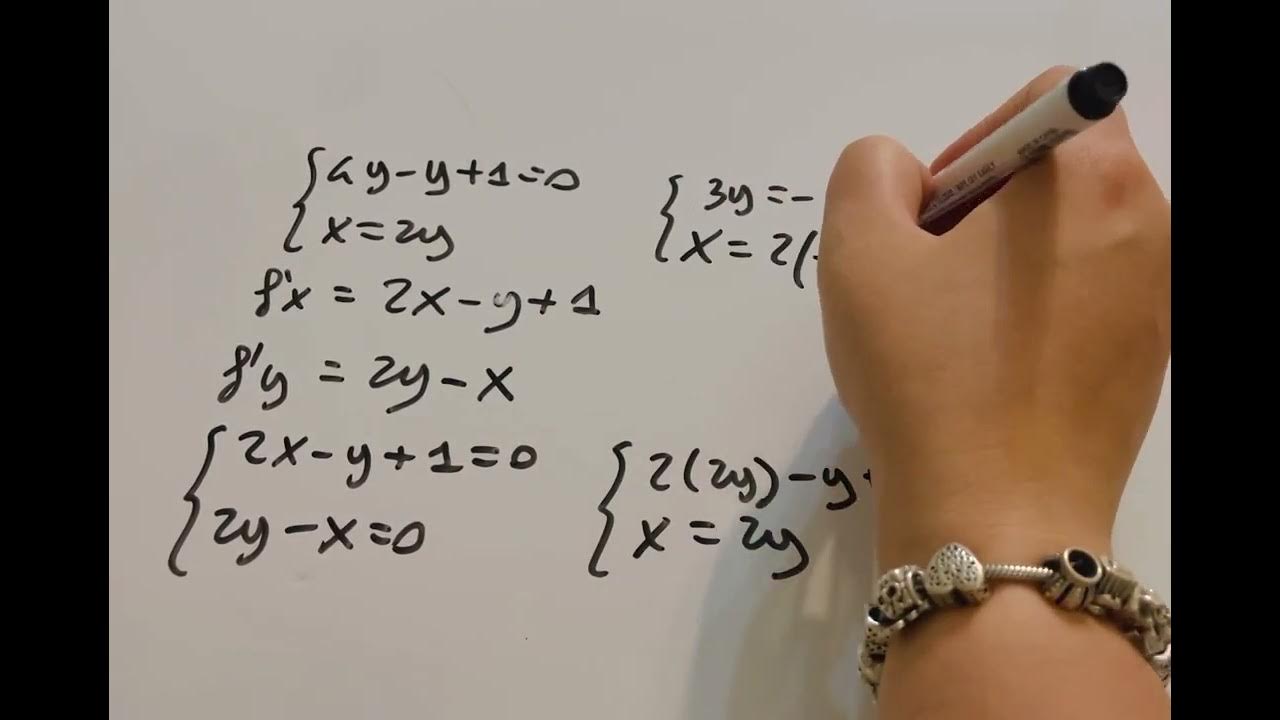 4y-y+1=0
x=2y
3y=-
x=2(
f'x = 2x-y+1
f'y = 2y-x
2x-y+1=0
2y-x=0
2(2y)-y+
x = 2y